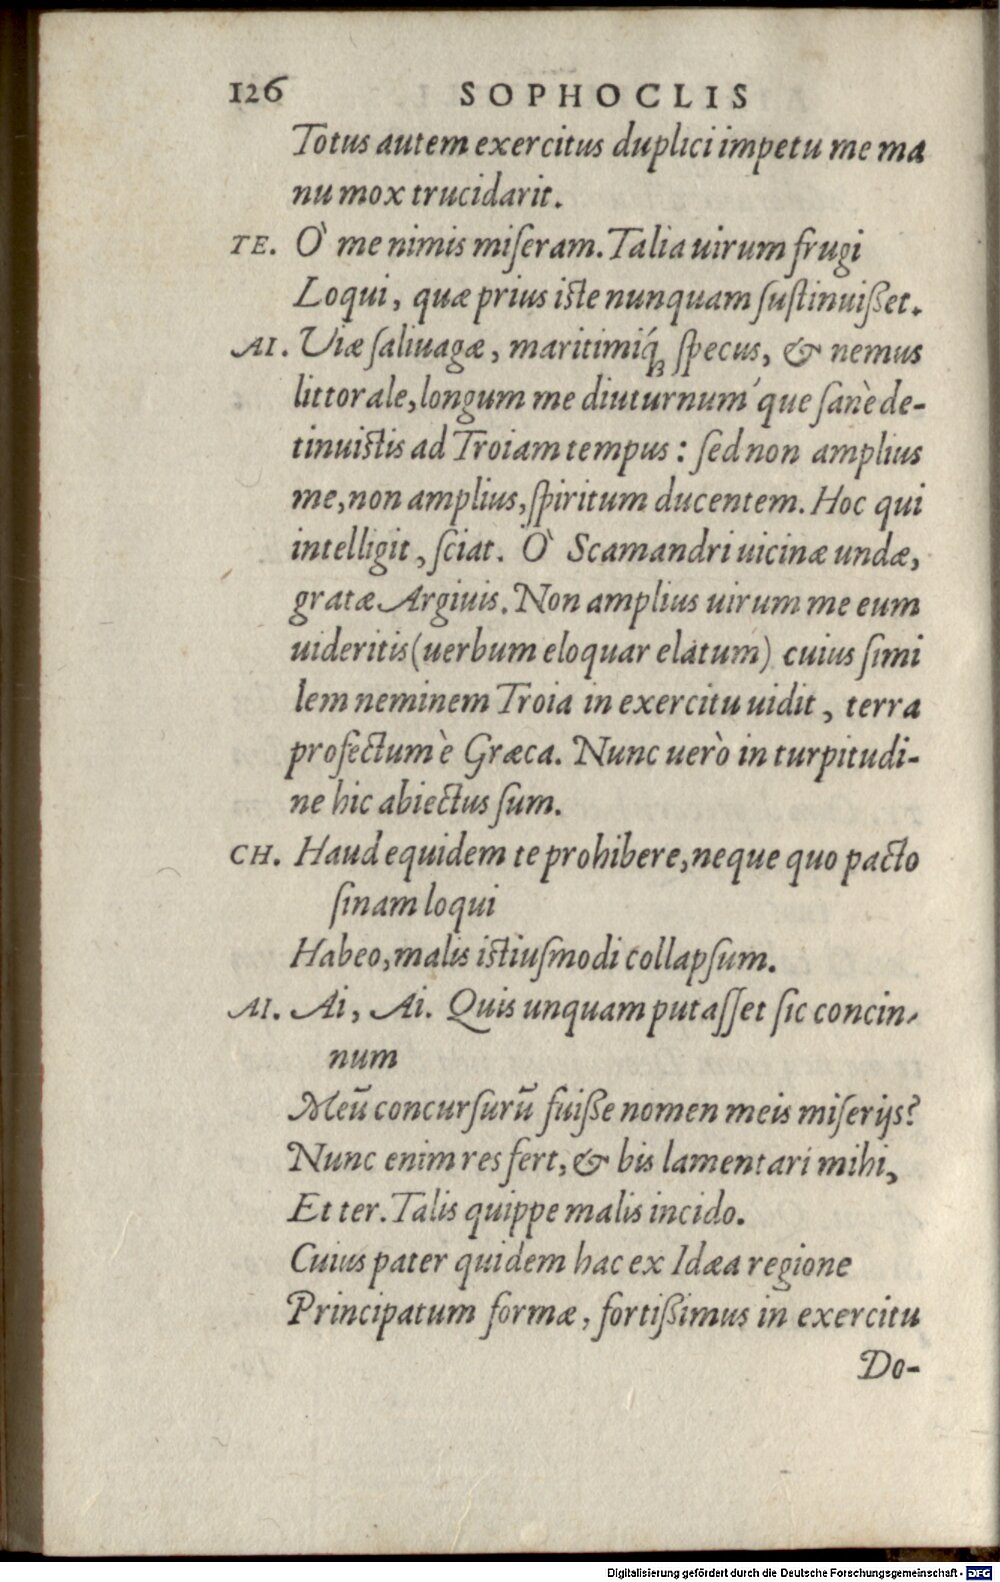 126 SOPHOCLIS
Totus autem exercitus duplici impetu me ma
nu mox trucidarit.
TE. Ò me nimis miſeram. Talia uirum frugi
Loqui, quæ prius iſte nunquam ſuſtinuißet.
AI. Viæ ſaliuagæ, maritimiq́; ſpecus, & nemus
littorale, longum me diuturnuḿque ſanè de-
tinuiſtis ad Troiam tempus: ſed non amplius
me, non amplius, ſpiritum ducentem. Hoc qui
intelligit, ſciat. Ò Scamandri uicinæ undæ,
gratæ Argiuis. Non amplius uirum me eum
uideritis (uerbum eloquar elatum) cuius ſimi
lem neminem Troia in exercitu uidit, terra
profectum è Græca. Nunc uerò in turpitudi-
ne hic abiectus ſum.
CH. Haud equidem te prohibere, neque quo pacto
ſinam loqui
Habeo, malis iſtiuſmodi collapſum.
AI. Ai, Ai. Quis unquam putaſſet ſic concin-
num
Meũ concurſurũ fuiße nomen meis miſerijs?
Nunc enim res fert, & bis lamentari mihi,
Et ter. Talis quippe malis incido.
Cuius pater quidem hac ex Idæa regione
Principatum formæ, fortißimus in exercitu
Do-
Digitalisierung gefördert durch die Deutsche Forschungsgemeinschaft - DFG